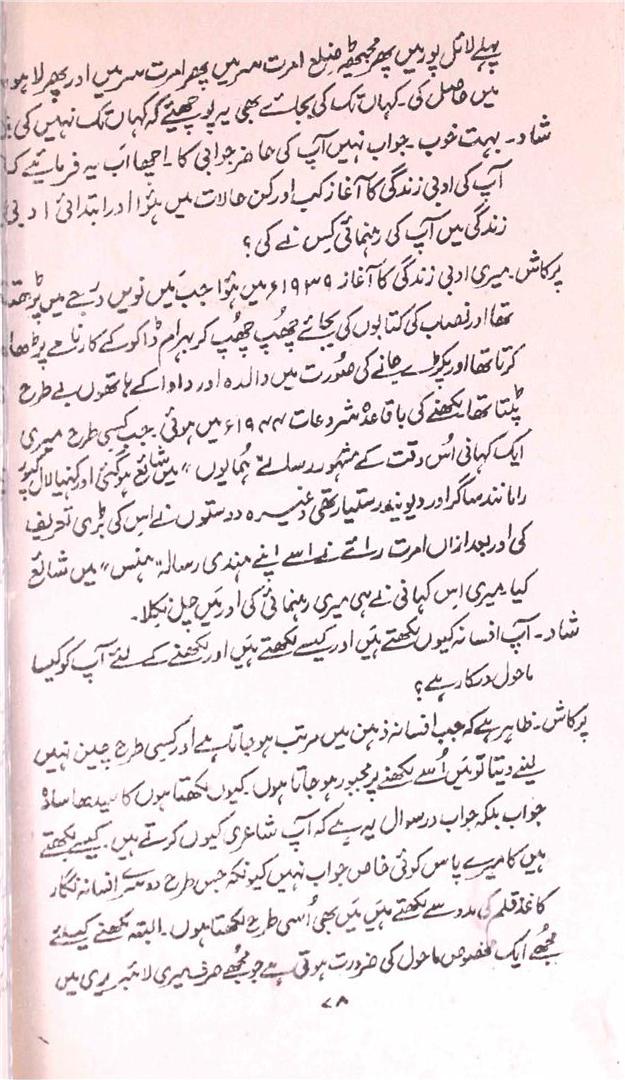 پہلے لائل پور میں پھر مجیٹھہ ضلع امرت سر میں پھر امرت سر میں اور پھر لاہور
میں حاصل کی۔ کہاں تک کی بجائے بھی یہ پوچھیئے کہ کہاں تک نہیں کی
شاد۔ بہت خوب۔ جواب نہیں آپ کی حاضر جوابی کا۔ اچھا اب یہ فرمائیے کہ
آپ کی ادبی زندگی کا آغاز کب اور کن حالات میں ہوٗا اور ابتدائی ادبی
زندگی میں آپ کی رہنمائی کس نے کی؟
پرکاش۔ میری ادبی زندگی کا آغاز ۱۹۳۹ء میں ہوٗا جب میں نویں درجے میں پڑھتا
تھا اور نصاب کی کتابوں کی بجائے چھُپ چھُپ کر بہرام ڈاکو کے کارنامے پڑھا
کرتا تھا اور پکڑے جانے کی صورت میں والدہ اور دادا کے ہاتھوں بے طرح
پٹتا تھا۔ لکھنے کی باقاعدہ شروعات ۱۹۴۴ء میں ہوئی۔ جب کسی طرح میری
ایک کہانی اُس وقت کے مشہور رسالے "ہمایوں" میں شائع ہو گئی اور کنہیا لال کپور
رامانند ساگر اور دیویندر ستیارتھی وغیرہ دوستوں نے اس کی بڑی تعریف
کی اور بعد ازاں امرت رائے نے اسے اپنے ہندی رسالہ "ہنس" میں شائع
کیا۔ میری اس کہانی نے ہی میری رہنمائی کی اور میں چل نکلا۔
شاد۔ آپ افسانہ کیوں لکھتے ہیں اور کیسے لکھتے ہیں اور لکھنے کے لئے آپ کو کیسا
ماحول درکار ہے؟
پرکاش۔ ظاہر ہے کہ جب افسانہ ذہن میں مرتب ہو جاتا ہے اور کسی طرح چین نہیں
لینے دیتا تو میں اُسے لکھنے پر مجبور ہو جاتا ہوں۔ کیوں لکھتا ہوں کا سیدھا سادا
جواب بلکہ جواب در سوال یہ ہے کہ آپ شاعری کیوں کرتے ہیں۔ کیسے لکھتے
ہیں کا میرے پاس کوئی خاص جواب نہیں کیونکہ جس طرح دوسرے افسانہ نگار
کاغذ قلم کی مدد سے لکھتے ہیں میں بھی اُسی طرح لکھتا ہوں۔ البتہ لکھنے کیلئے
مجھے ایک مخصوص ماحول کی ضرورت ہوتی ہے جو مجھے صرف میری لائبریری میں
۷۸